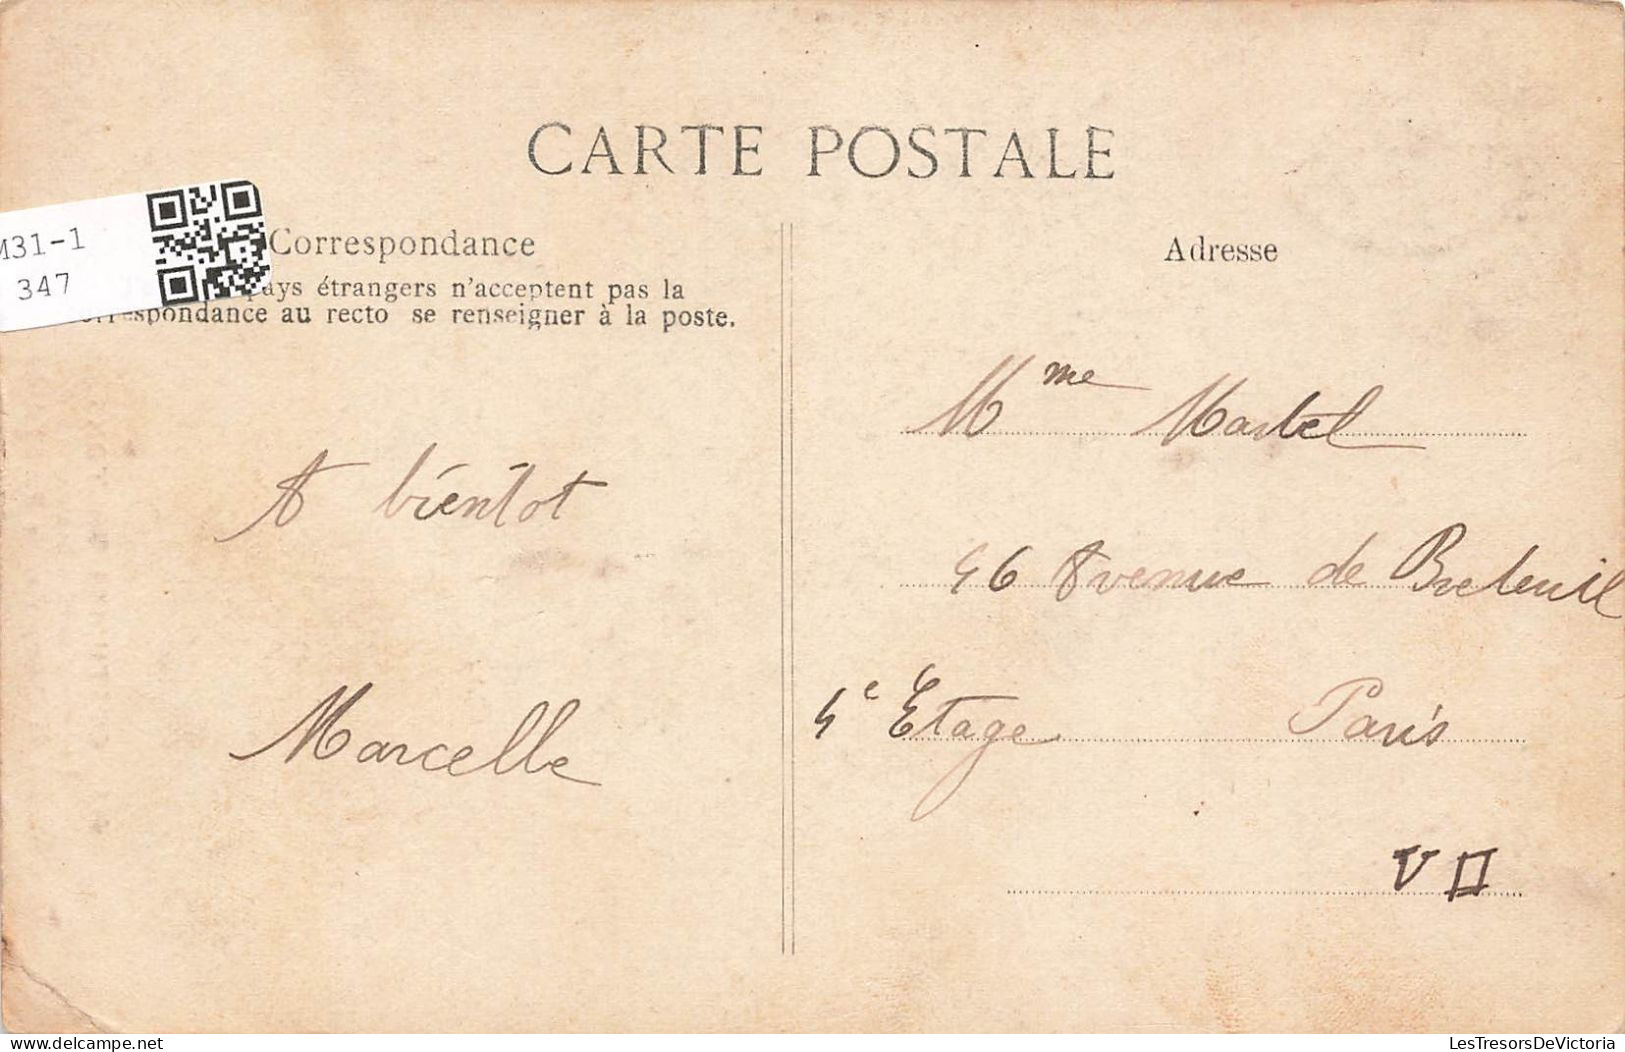 CARTE POSTALE
M31-1
347
Correspondance
pays étrangers n'acceptent pas la
correspondance au recto se renseigner à la poste.
A bientot
Marcelle
Adresse
Mme Martel
46 Avenue de Breteuil
4e Etage Paris
VII
delcampe.net
LesTresorsDeVictoria